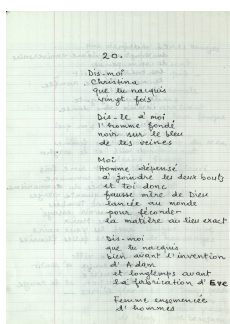 20.
Dis-moi
Christina
que tu naquis
vingt fois
Dis-le à moi
l'homme fondé
noir sur le bleu
de tes veines
Moi
Homme dépensé
à joindre les deux bouts
et toi donc
fausse mère de Dieu
lancée au monde
pour féconder
la matière au lieu exact
Dis-moi
que tu naquis
bien avant l'invention
d'Adam
et longtemps avant
la fabrication d'Eve
Femme ensemencée
d'hommes